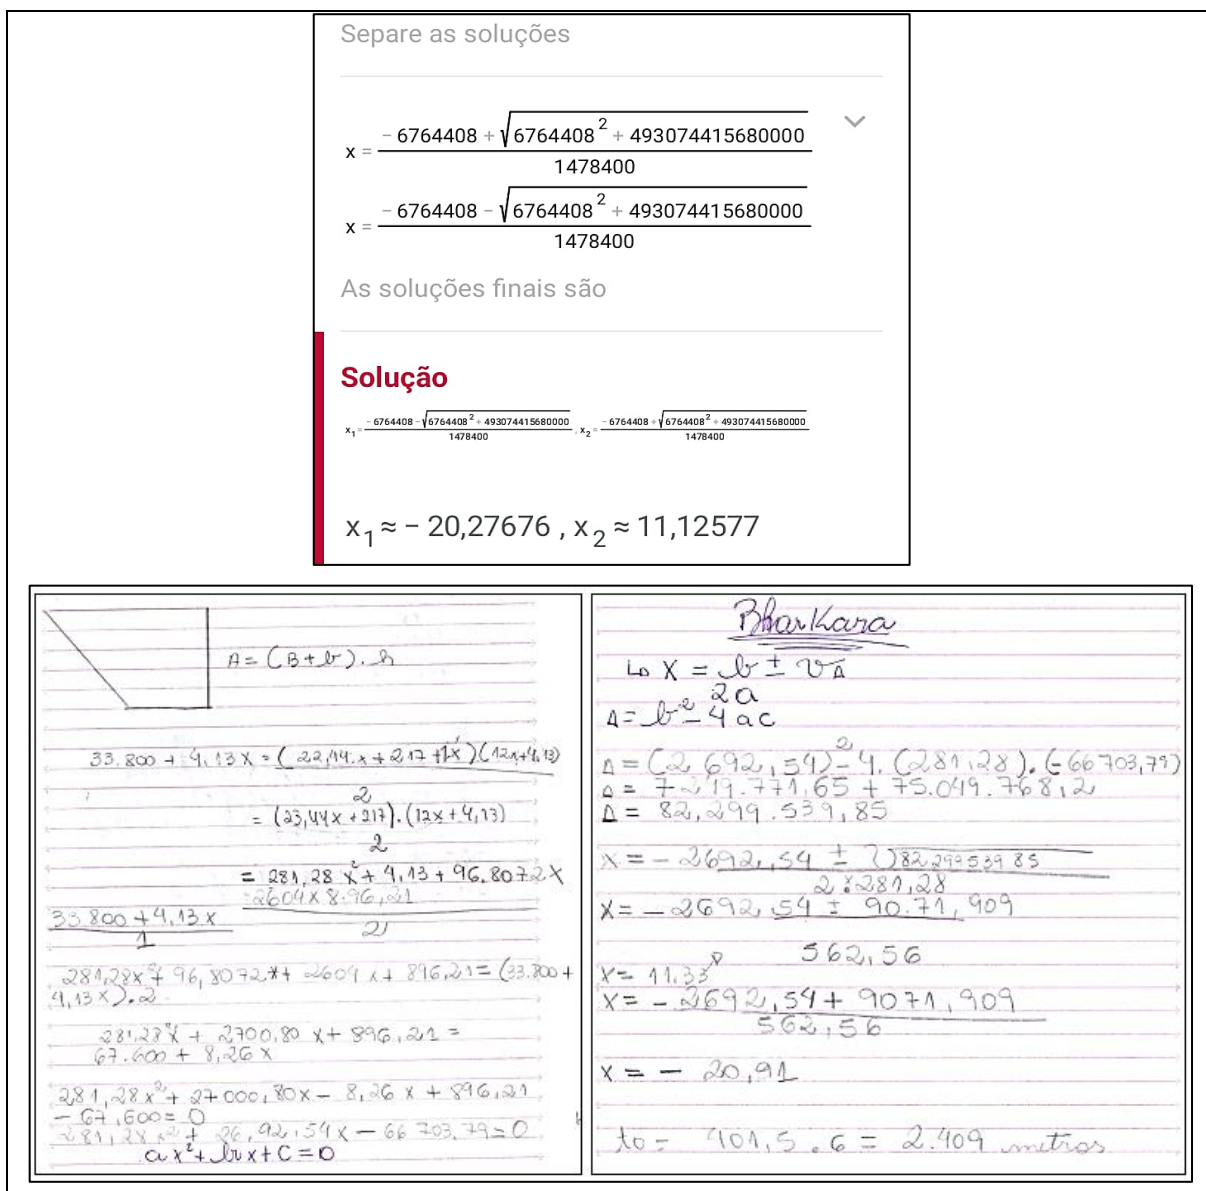 Separe as soluções
x = (− 6764408 + √(6764408² + 493074415680000)) / 1478400
x = (− 6764408 − √(6764408² + 493074415680000)) / 1478400
As soluções finais são
Solução
x₁ = (− 6764408 − √(6764408² + 493074415680000)) / 1478400 , x₂ = (− 6764408 + √(6764408² + 493074415680000)) / 1478400
x₁ ≈ − 20,27676 , x₂ ≈ 11,12577
A = (B + b) . h
33.800 + 4,13x = (22,44.x + 217 + 1x) (12x + 4,13)
2
= (23,44x + 217) . (12x + 4,13)
2
= 281,28 x² + 4,13 + 96.8072x
2604x 896,21
33.800 + 4,13x
1
2
281,28x² + 96,8072x + 2604 x + 896,21 = (33.800 +
4,13x).2
281,28x² + 2700,80 x + 896,21 =
67.600 + 8,26x
281,28x² + 27000,80x − 8,26 x + 896,21
− 67.600 = 0
281,28x² + 26,92,54x − 66 703,79 = 0
ax² + bx + c = 0
Bharkara
↳ x = b ± √Δ
2a
Δ = b² − 4 ac
Δ = (2 692,54)² − 4. (281,28). (−66 703,79)
Δ = 7 249.771,65 + 75.049.768,2
Δ = 82.299.539,85
x = − 2692,54 ± √82 299 539 85
2 . 281,28
x = − 2692,54 ± 90.71,909
562,56
x = 11,33
x = − 2692,54 + 9071,909
562,56
x = − 20,91
to = 401,5 . 6 = 2.409 metros